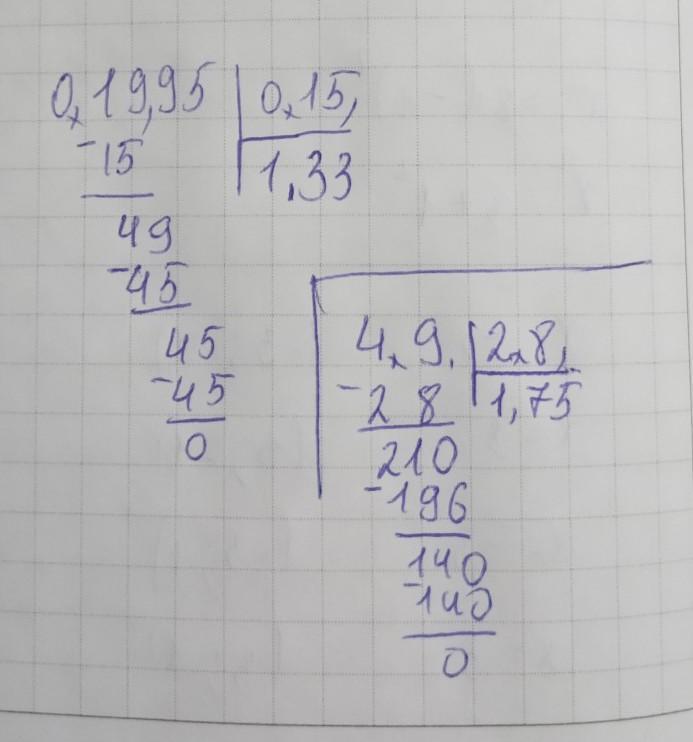 0,19,95 0,15,
-15 1,33
49
-45
45
-45
0
4,9, 2,8,
-28 1,75
210
-196
140
-140
0